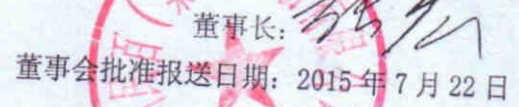 董事长：
董事会批准报送日期：2015年7月22日